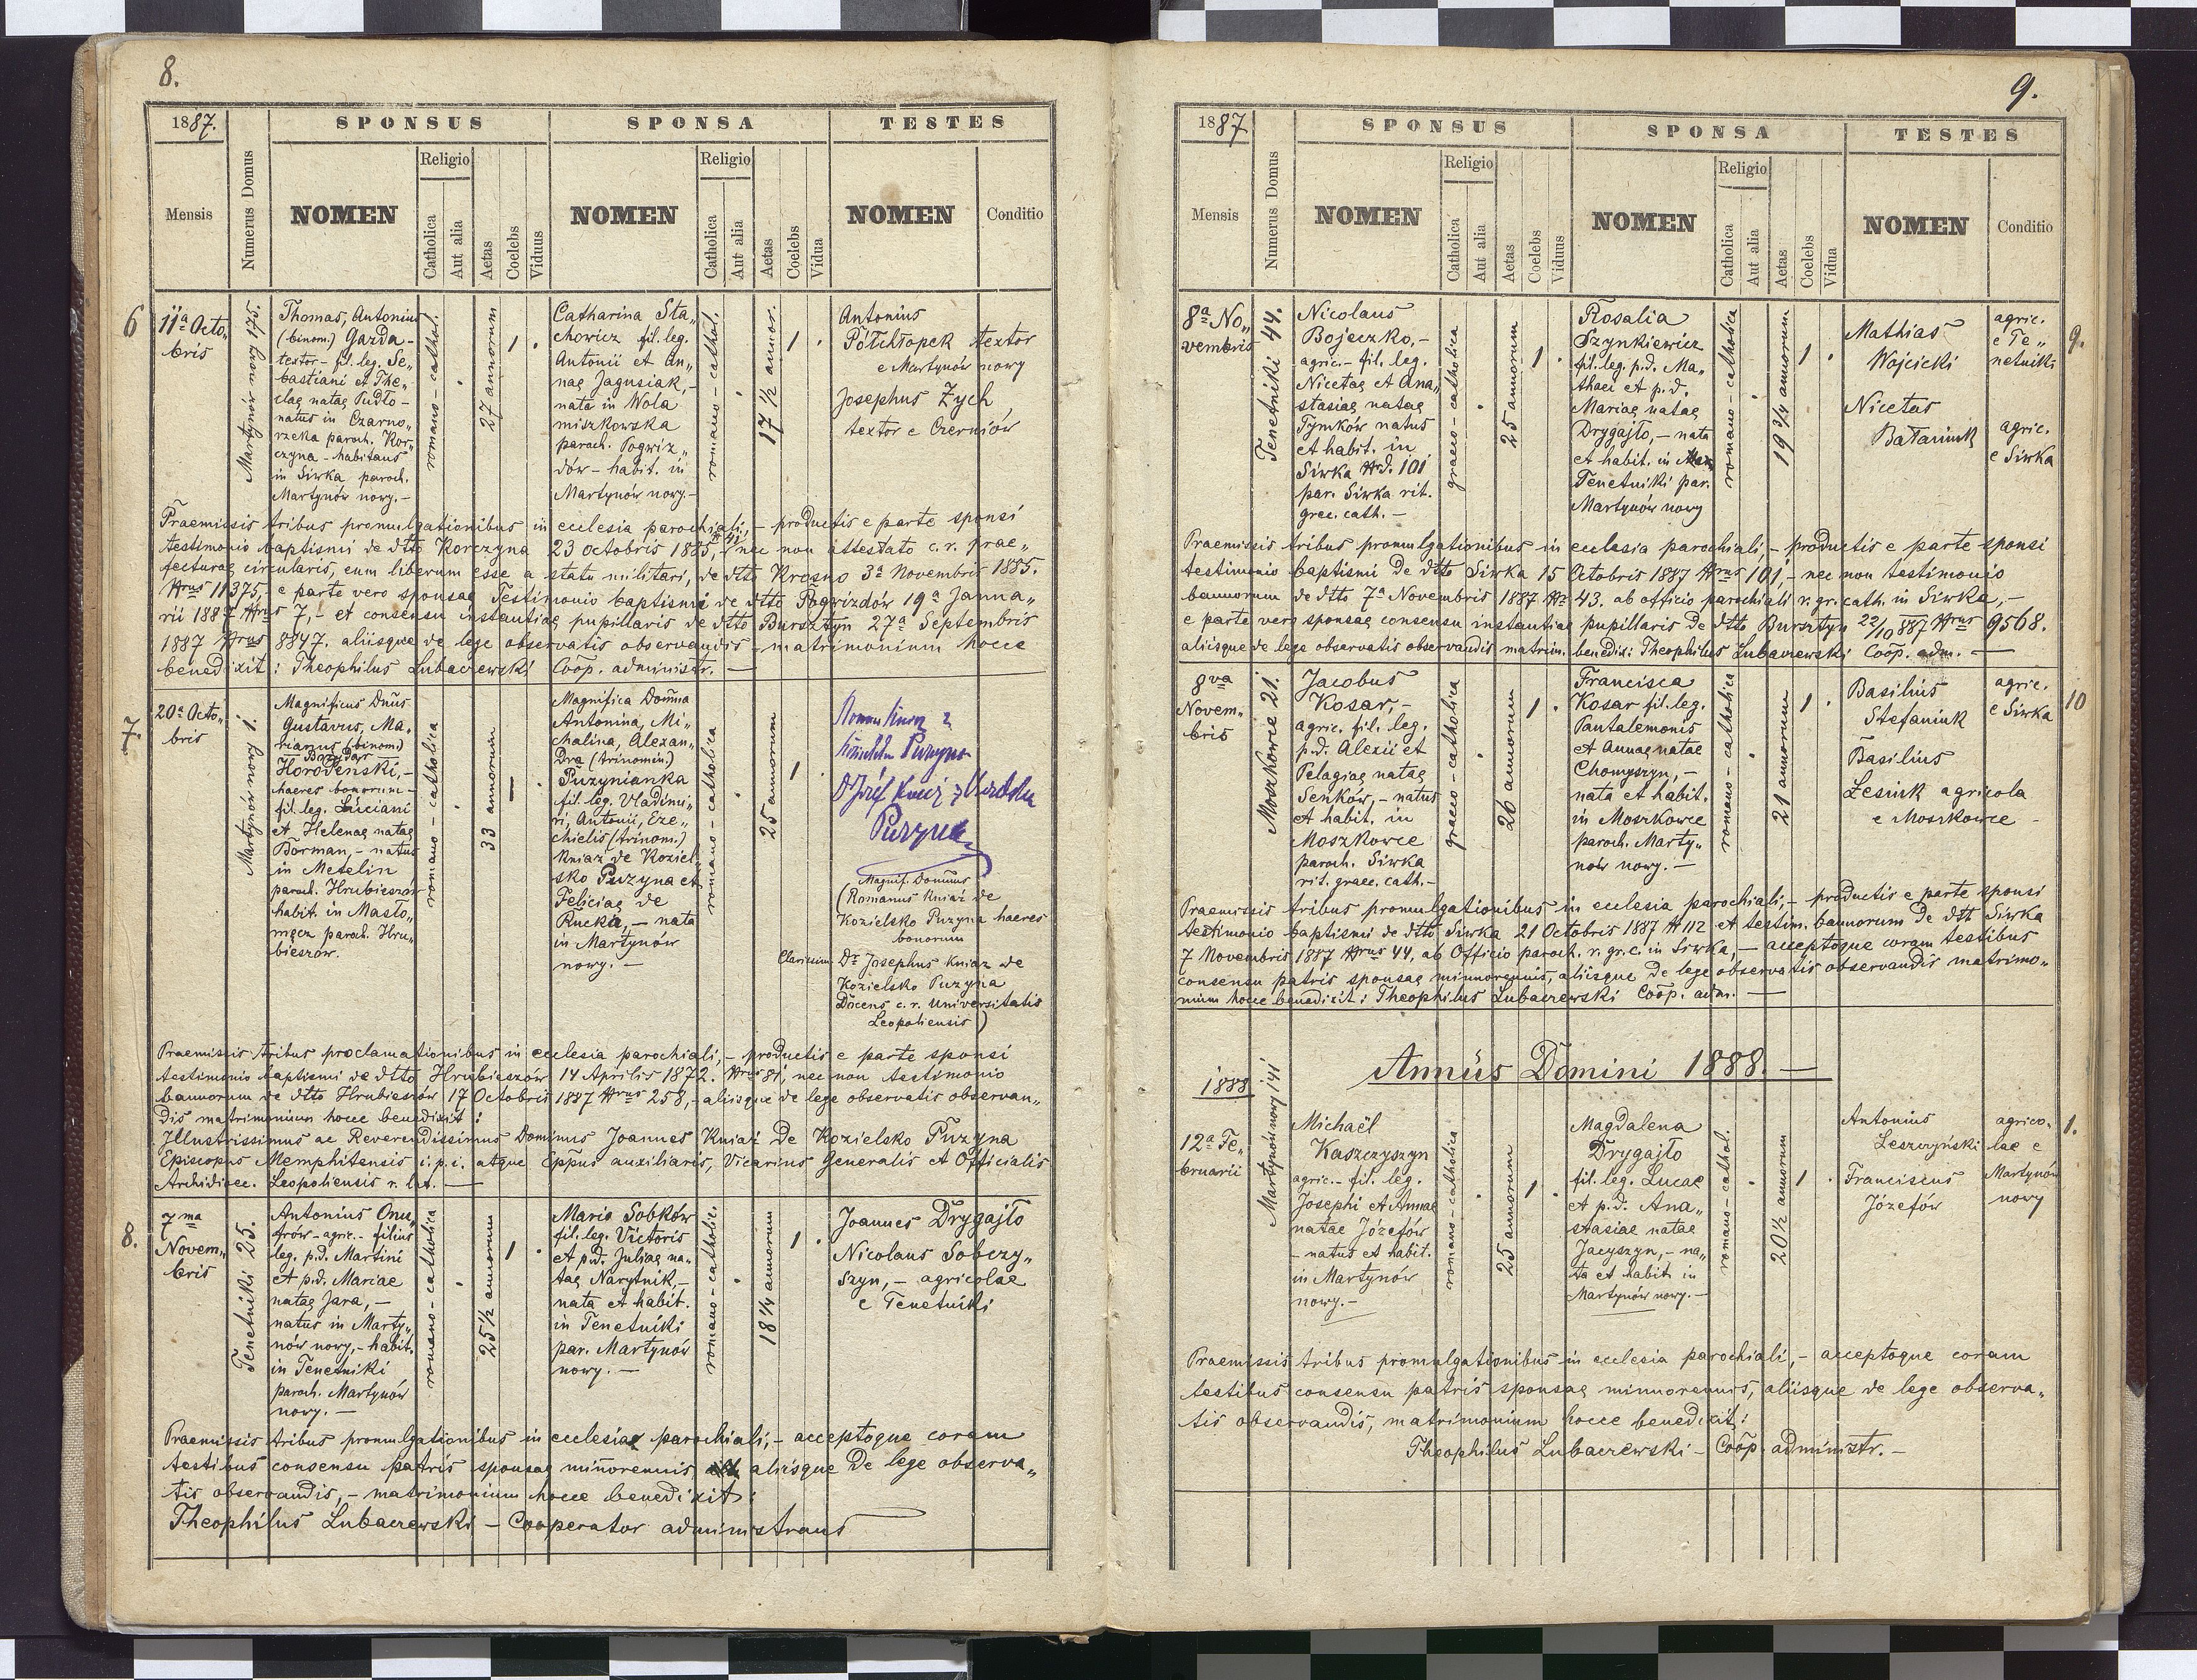 8.
1887.
SPONSUS
SPONSA
TESTES
Mensis
Numerus Domus
NOMEN
Religio
Catholica
Aut alia
Aetas
Coelebs
Viduus
NOMEN
Religio
Catholica
Aut alia
Aetas
Coelebs
Vidua
NOMEN
Conditio
6
11a Octo„
bris
Martynów nowy 175.
Thomas, Antonius
(binom.) Gazda -
textor - fil. leg. Se„
bastiani et The„
clae natae Pudło -
natus in Czarno„
rzeka paroch. Kor„
czyna - habitans
in Siwka paroch.
Martynów nowy. -
romano - cathol.
27 annorum
1
Catharina Sta„
chowicz fil. leg.
Antonii et An„
nae Jagusiak, -
nata in Wola
miszkowska
paroch. Pogwiz„
dów - habit. in
Martynów nowy. -
romano - cathol.
17 1/2 annor.
1
Antonius
Półchłopek textor
e Martynów nowy
Josephus Zych
textor e Czerniów
Praemissis tribus promulgationibus in ecclesia parochiali, - productis e parte sponsi
testimonio baptismi de dtto Korczyna 23 octobris 1885, nec non attestato c. r. prae„
fecturae circularis, eum liberum esse a statu militari, de dtto Krosno 3a Novembris 1885.
Nrus 11375, - e parte vero sponsae Testimonio baptismi de dtto Pogwizdów 19a Janua„
rii 1887 Nrus 7, - et consensu instantiae pupillaris de dtto Bursztyn 27a Septembris
1887 Nrus 8847. aliisque de lege observatis observandis - matrimonium hocce
benedixit : Theophilus Lubaczewski Coop. administr. -
7.
20a Octo„
bris
Martynów nowy 1.
Magnificus Dnus
Gustavus, Ma„
rianus (binom.)
Bożydar
Horodenski, -
haeres bonorum -
fil. leg. Luciani
et Helenae natae
Borman, - natus
in Metelin
paroch. Hrubieszów
habit. in Masło„
męcz paroch. Hru„
bieszów.
romano - catholica
33 annorum
Magnifica Domna
Antonina, Mi„
chalina, Alexan„
dra (trinomin.)
Puzynianka
fil. leg. Vladimi„
ri, Antonii, Eze„
chielis (trinom.)
Kniaź de Koziel„
sko Puzyna et
Feliciae de
Rucka, - nata
in Martynów
nowy. -
romano - catholica
25 annorum
1
Puzyna
Puzyna
(Magnif. Dominus
Romanus Kniaź de
Kozielsko Puzyna haeres
bonorum
Clarissim. Dr Josephus Kniaz de
Kozielsko Puzyna
Docens c. r. Universitatis
Leopoliensis)
Praemissis tribus proclamationibus in ecclesia parochiali, - productis e parte sponsi
testimonio baptismi de dtto Hrubieszów 14 Aprilis 1872. Nrus 81, nec non testimonio
bannorum de dtto Hrubieszów 17 Octobris 1887 Nrus 258, - aliisque de lege observatis observan„
dis matrimonium hocce benedixit :
Illustrissimus ac Reverendissimus Dominus Joannes Kniaź de Kozielsko Puzyna
Episcopus Memphitensis i. p. i. atque Eppus auxiliaris, Vicarius Generalis et Officialis
Archidioec. Leopoliensis r. lat. -
8.
7ma
Novem„
bris
Tenetniki 25.
Antonius Onu„
frów - agric. - filius
leg. p.d. Martini
et p.d. Mariae
natae Jara, -
natus in Marty„
nów nowy, - habit.
in Tenetniki
paroch. Martynów
nowy. -
romano - catholica
25 1/2 annorum
1
Maria Sobków
fil. leg. Victoris
et p.d. Juliae na„
tae Narytnik, -
nata et habit.
in Tenetniki
par. Martynów
nowy. -
romano - catholic.
18 1/4 annorum
1
Joannes Drygajło
Nicolaus Sobczy„
szyn, - agricolae
e Tenetniki
Praemissis tribus promulgationibus in ecclesia parochiali, - acceptoque coram
testibus consensu patris sponsae minorennis aliisque de lege observa„
tis observandis, - matrimonium hocce benedixit :
Theophilus Lubaczewski - Cooperator administrans
9.
1887
SPONSUS
SPONSA
TESTES
Mensis
Numerus Domus
NOMEN
Religio
Catholica
Aut alia
Aetas
Coelebs
Viduus
NOMEN
Religio
Catholica
Aut alia
Aetas
Coelebs
Vidua
NOMEN
Conditio
8a No„
vembris
Tenetniki 44.
Nicolaus
Bojeczko, -
agric. - fil. leg.
Nicetae et Ana„
stasiae natae
Tymków natus
et habit. in
Siwka Nd. 101
par. Siwka rit.
grec. cath. -
graeco - catholica
25 annorum
1
Rosalia
Szynkiewicz
fil. leg. p.d. Ma„
thaei et p.d.
Mariae natae
Drygajło, - nata
et habit. in
Tenetniki par.
Martynów nowy
romano - catholica
19 3/4 annorum
1
Mathias
Wojcicki
agric.
e Te„
netniki
Nicetas
Bałaniuk
agric.
e Siwka
9.
Praemissis tribus promulgationibus in ecclesia parochiali, - productis e parte sponsi
testimonio baptismi de dtto Siwka 15 Octobris 1887 Nrus 101 - nec non testimonio
bannorum de dtto 7a Novembris 1887 Nr 43. ab officio parochiali r. gr. cath. in Siwka, -
e parte vero sponsae consensu instantiae pupillaris de dtto Bursztyn 22/10 887 Nrus 9568.
aliisque de lege observatis observandis matrim. benedix: Theophilus Lubaczewski Coop. adm. -
8va
Novem„
bris
Moszkowce 21.
Jacobus
Kosar, -
agric. fil. leg.
p.d. Alexii et
Pelagiae natae
Senków, - natus
et habit. in
Moszkowce
paroch. Siwka
rit. graec. cath. -
graeco - catholica
26 annorum
1
Francisca
Kosar fil. leg.
Pantalemonis
et Annae natae
Chomyszyn, -
nata et habit.
in Moszkowce
paroch. Marty„
nów nowy. -
romano - catholica
21 annorum
1
Basilius
Stefaniuk
agric.
e Siwka
Basilius
Lesiuk agricola
e Moszkowce -
10
Praemissis tribus promulgationibus in ecclesia parochiali, - productis e parte sponsi
testimonio baptismi de dtto Siwka 21 Octobris 1887 N 112 et testim. bannorum de dtt Siwka
7 Novembris 1887 Nrus 44, ab Officio paroch. r. gr. c. in Siwka, - acceptoque coram testibus
consensu patris sponsae minnorennis, aliisque de lege observatis observandis matrimo„
nium hocce benedixit : Theophilus Lubaczewski Coop. adm. -
Annus Domini 1888. -
1888
12a Fe„
bruarii
Martynów nowy 141
Michaël
Kaszczyszyn
agric. - fil. leg.
Josephi et Annae
natae Józefów
- natus et habit.
in Martynów
nowy. -
romano - catholica
25 annorum
1
Magdalena
Drygajło
fil. leg. Lucae
et p.d. Ana„
stasiae natae
Jacyszyn, - na„
ta et habit. in
Martynów nowy. -
romano - cathol.
20 1/2 annorum
1
Antonius
Leszczyński
Franciscus
Józefów
agrico„
lae e
Martynów
nowy
1.
Praemissis tribus promulgationibus in ecclesia parochiali, - acceptoque coram
testibus consensu patris sponsae minnorennis, aliisque de lege observa„
tis observandis, matrimonium hocce benedixit :
Theophilus Lubaczewski - Coop. administr. -